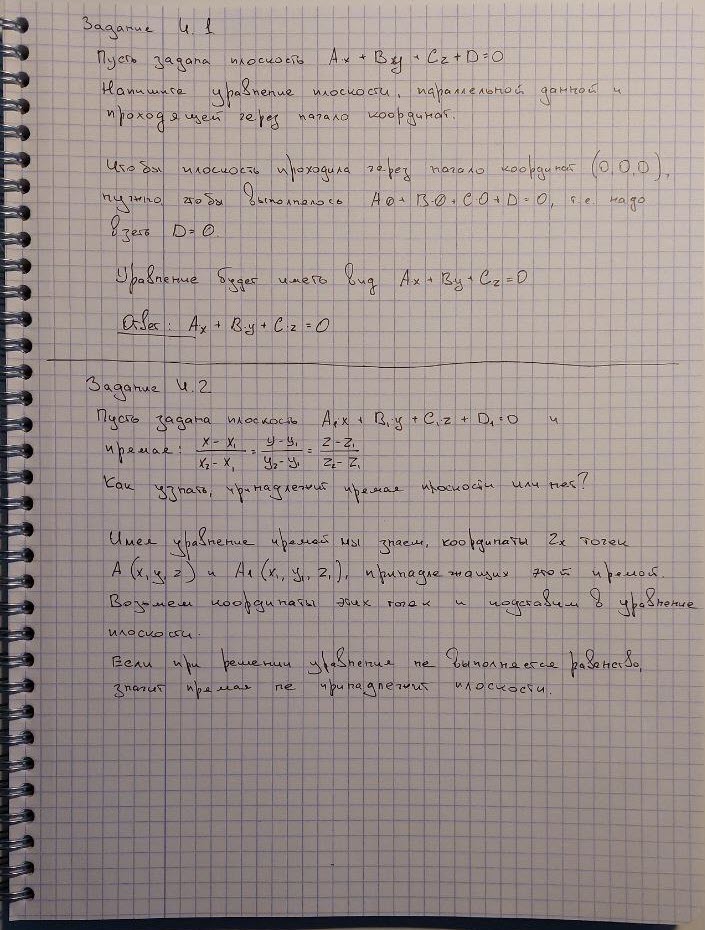 Задание 4.1
Пусть задана плоскость Ax + By + Cz + D = 0
Напишите уравнение плоскости, параллельной данной и
проходящей через начало координат.
Чтобы плоскость проходила через начало координат (0,0,0),
нужно чтобы выполнялось A·0 + B·0 + C·0 + D = 0, т.е. надо
взять D = 0.
Уравнение будет иметь вид Ax + By + Cz = 0
Ответ: Ax + B·y + C·z = 0
Задание 4.2
Пусть задана плоскость A₁x + B₁y + C₁z + D₁ = 0 и
прямая: (x - x₁)/(x₂ - x₁) = (y - y₁)/(y₂ - y₁) = (z - z₁)/(z₂ - z₁)
Как узнать, принадлежит прямая плоскости или нет?
Имея уравнение прямой мы знаем, координаты 2х точек
A (x, y, z) и A₁ (x₁, y₁, z₁), принадлежащих этой прямой.
Возьмем координаты этих точек и подставим в уравнение
плоскости.
Если при решении уравнения не выполняется равенство,
значит прямая не принадлежит плоскости.